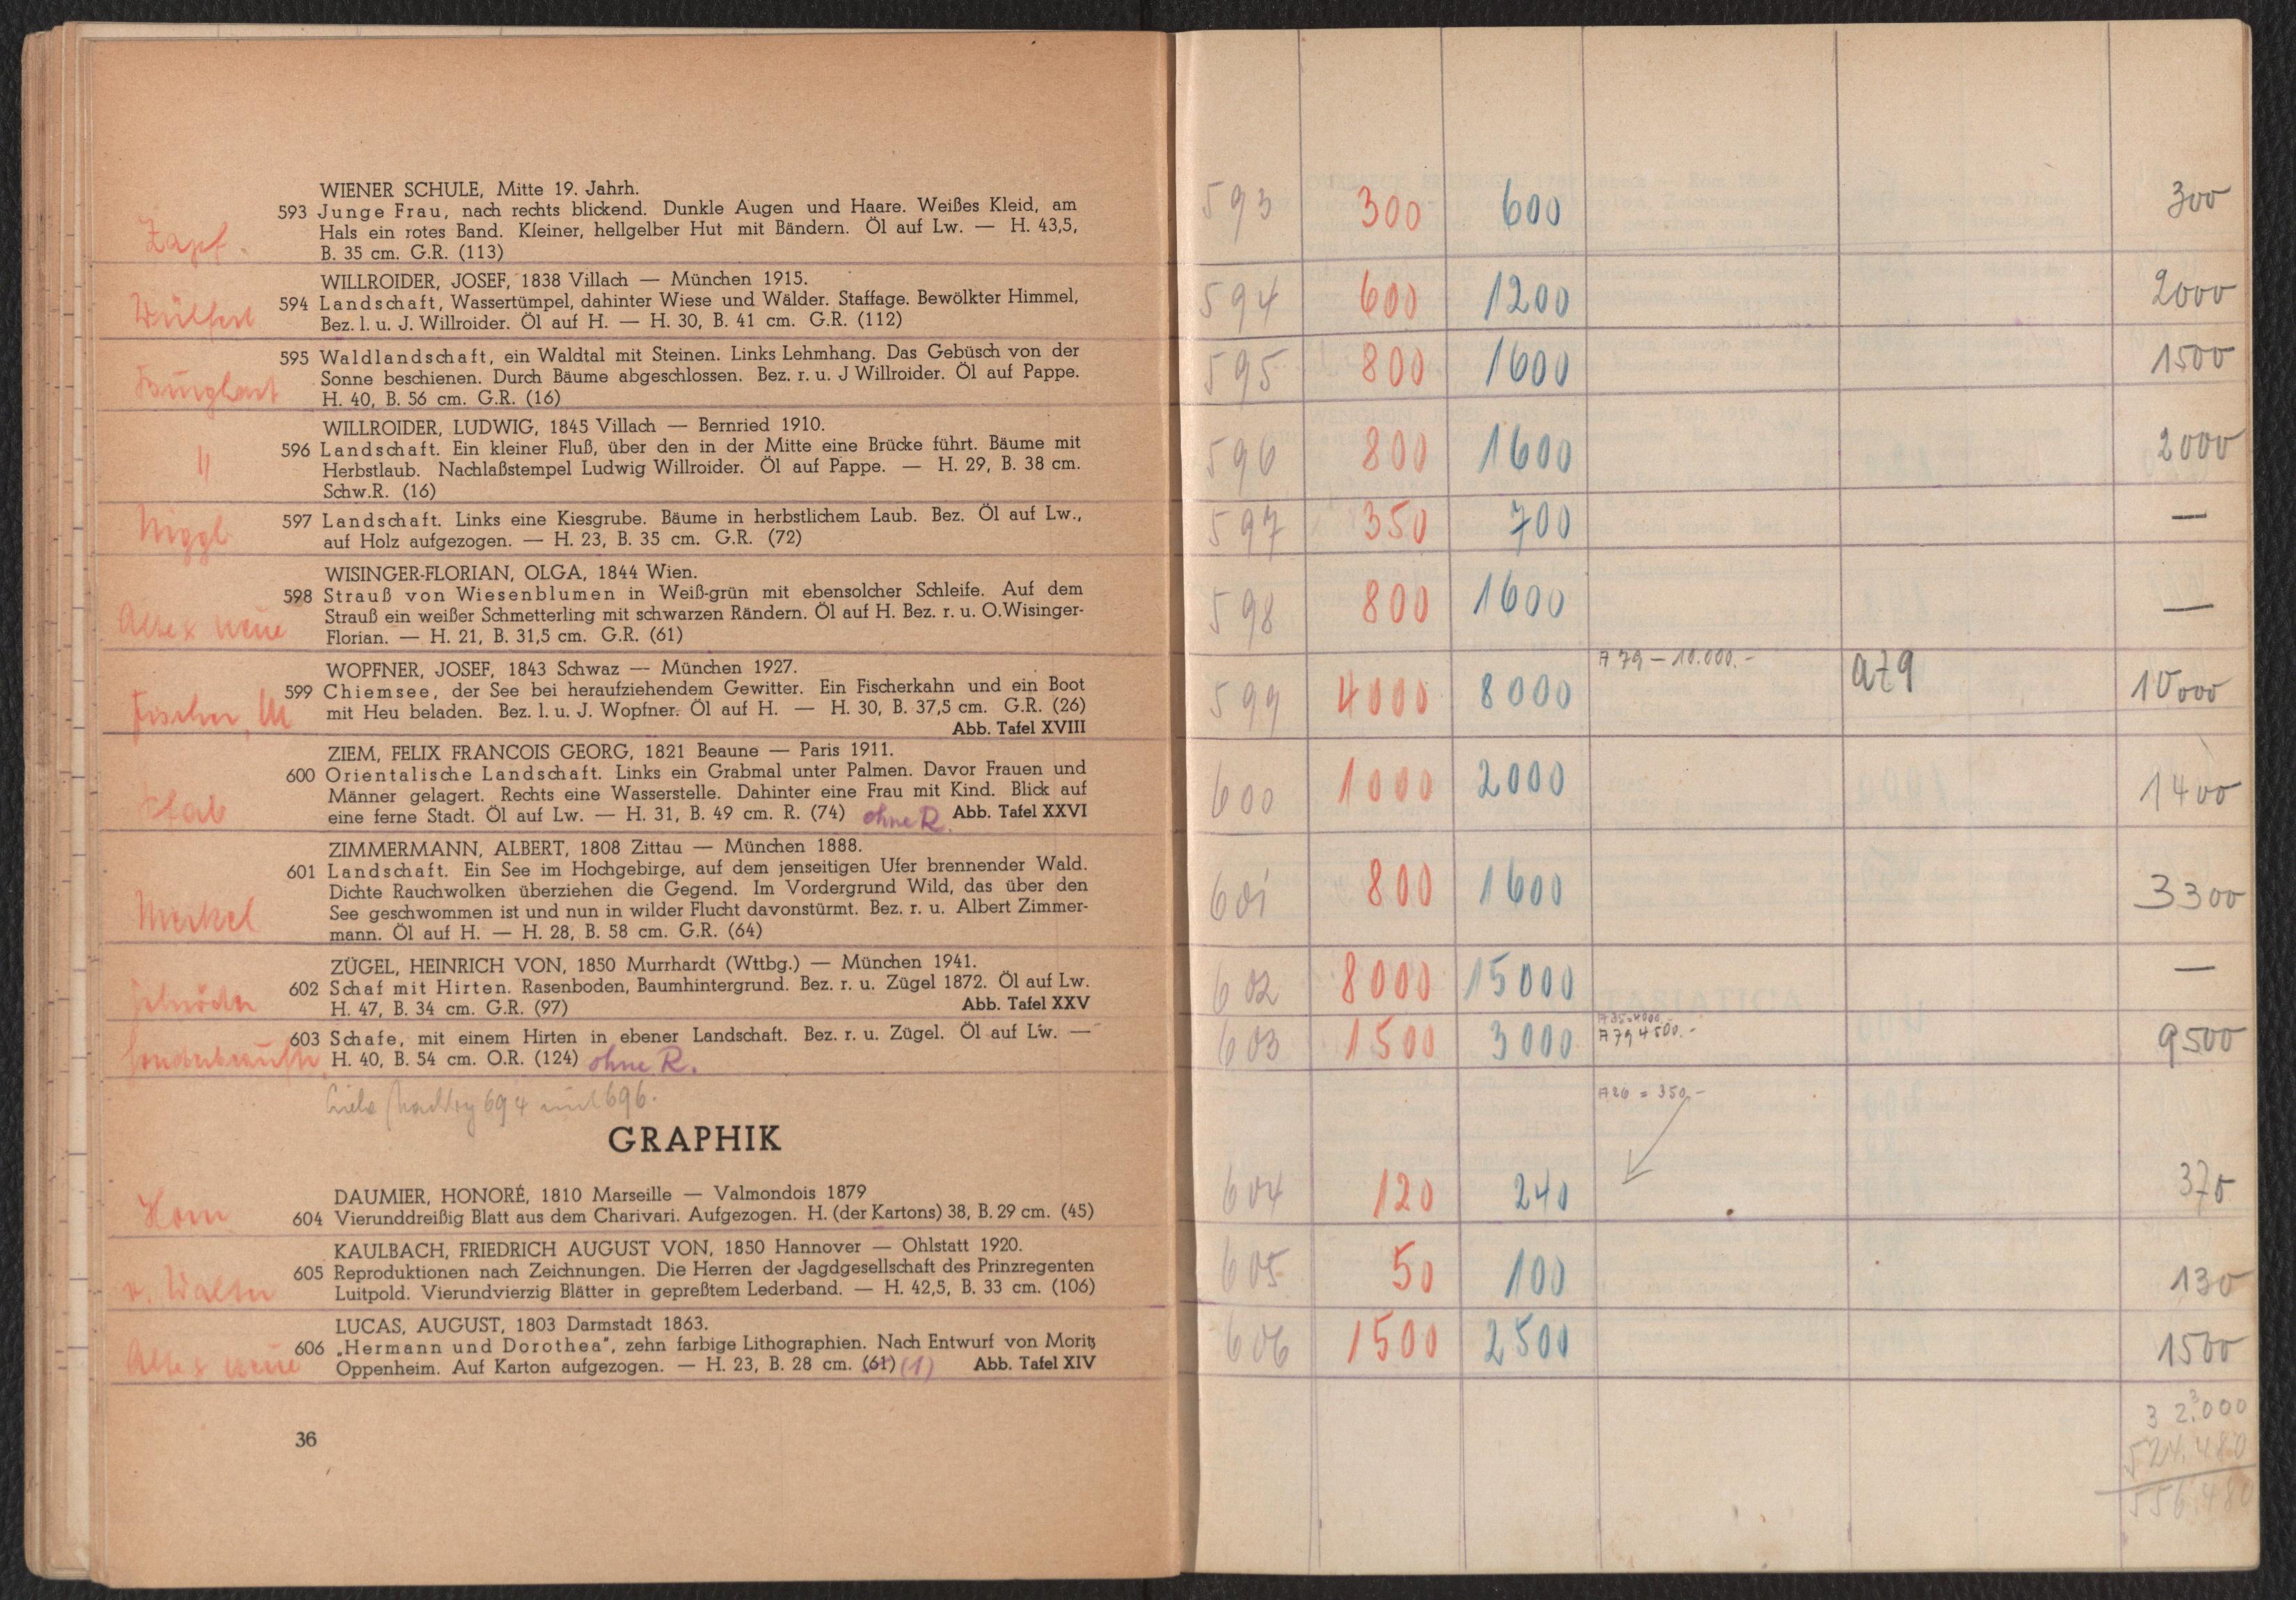 WIENER SCHULE, Mitte 19. Jahrh.
593 Junge Frau, nach rechts blickend. Dunkle Augen und Haare. Weißes Kleid, am
Hals ein rotes Band. Kleiner, hellgelber Hut mit Bändern. Öl auf Lw. — H. 43,5,
Zapf.
B. 35 cm. G.R. (113)
WILLROIDER, JOSEF, 1838 Villach — München 1915.
594 Landschaft, Wassertümpel, dahinter Wiese und Wälder. Staffage. Bewölkter Himmel,
Wülfert
Bez. l. u. J. Willroider. Öl auf H. — H. 30, B. 41 cm. G.R. (112)
595 Waldlandschaft, ein Waldtal mit Steinen. Links Lehmhang. Das Gebüsch von der
Sonne beschienen. Durch Bäume abgeschlossen. Bez. r. u. J Willroider. Öl auf Pappe.
H. 40, B. 56 cm. G.R. (16)
WILLROIDER, LUDWIG, 1845 Villach — Bernried 1910.
596 Landschaft. Ein kleiner Fluß, über den in der Mitte eine Brücke führt. Bäume mit
"
Herbstlaub. Nachlaßstempel Ludwig Willroider. Öl auf Pappe. — H. 29, B. 38 cm.
Schw.R. (16)
Niggl
597 Landschaft. Links eine Kiesgrube. Bäume in herbstlichem Laub. Bez. Öl auf Lw.,
auf Holz aufgezogen. — H. 23, B. 35 cm. G.R. (72)
WISINGER-FLORIAN, OLGA, 1844 Wien.
598 Strauß von Wiesenblumen in Weiß-grün mit ebensolcher Schleife. Auf dem
Strauß ein weißer Schmetterling mit schwarzen Rändern. Öl auf H. Bez. r. u. O.Wisinger-
Florian. — H. 21, B. 31,5 cm. G.R. (61)
WOPFNER, JOSEF, 1843 Schwaz — München 1927.
599 Chiemsee, der See bei heraufziehendem Gewitter. Ein Fischerkahn und ein Boot
Fischer, M
mit Heu beladen. Bez. l. u. J. Wopfner. Öl auf H. — H. 30, B. 37,5 cm. G.R. (26)
Abb. Tafel XVIII
ZIEM, FELIX FRANCOIS GEORG, 1821 Beaune — Paris 1911.
600 Orientalische Landschaft. Links ein Grabmal unter Palmen. Davor Frauen und
Männer gelagert. Rechts eine Wasserstelle. Dahinter eine Frau mit Kind. Blick auf
eine ferne Stadt. Öl auf Lw. — H. 31, B. 49 cm. R. (74) ohne R. Abb. Tafel XXVI
ZIMMERMANN, ALBERT, 1808 Zittau — München 1888.
601 Landschaft. Ein See im Hochgebirge, auf dem jenseitigen Ufer brennender Wald.
Dichte Rauchwolken überziehen die Gegend. Im Vordergrund Wild, das über den
Merkel
See geschwommen ist und nun in wilder Flucht davonstürmt. Bez. r. u. Albert Zimmer-
mann. Öl auf H. — H. 28, B. 58 cm. G.R. (64)
ZÜGEL, HEINRICH VON, 1850 Murrhardt (Wttbg.) — München 1941.
602 Schaf mit Hirten. Rasenboden, Baumhintergrund. Bez. r. u. Zügel 1872. Öl auf Lw.
Schröder
H. 47, B. 34 cm. G.R. (97) Abb. Tafel XXV
603 Schafe, mit einem Hirten in ebener Landschaft. Bez. r. u. Zügel. Öl auf Lw. —
H. 40, B. 54 cm. O.R. (124) ohne R.
694 mit 696.
GRAPHIK
DAUMIER, HONORÉ, 1810 Marseille — Valmondois 1879
Horn
604 Vierunddreißig Blatt aus dem Charivari. Aufgezogen. H. (der Kartons) 38, B. 29 cm. (45)
KAULBACH, FRIEDRICH AUGUST VON, 1850 Hannover — Ohlstatt 1920.
605 Reproduktionen nach Zeichnungen. Die Herren der Jagdgesellschaft des Prinzregenten
v. Walter
Luitpold. Vierundvierzig Blätter in gepreßtem Lederband. — H. 42,5, B. 33 cm. (106)
LUCAS, AUGUST, 1803 Darmstadt 1863.
606 „Hermann und Dorothea", zehn farbige Lithographien. Nach Entwurf von Moritz
Oppenheim. Auf Karton aufgezogen. — H. 23, B. 28 cm. (61) (1) Abb. Tafel XIV
36
593 300 600 300
594 600 1200 2000
595 800 1600 1500
596 800 1600 2000
597 350 700 —
598 800 1600 —
A 79 – 10.000.-
599 4000 8000 a79 10000
600 1000 2000 1400
601 800 1600 3300
602 8000 15000 —
603 1500 3000 A 79 4500.- 9500
A26 = 350,-
604 120 240 370
605 50 100 130
606 1500 2500 1500
32.000
524.480
556.480